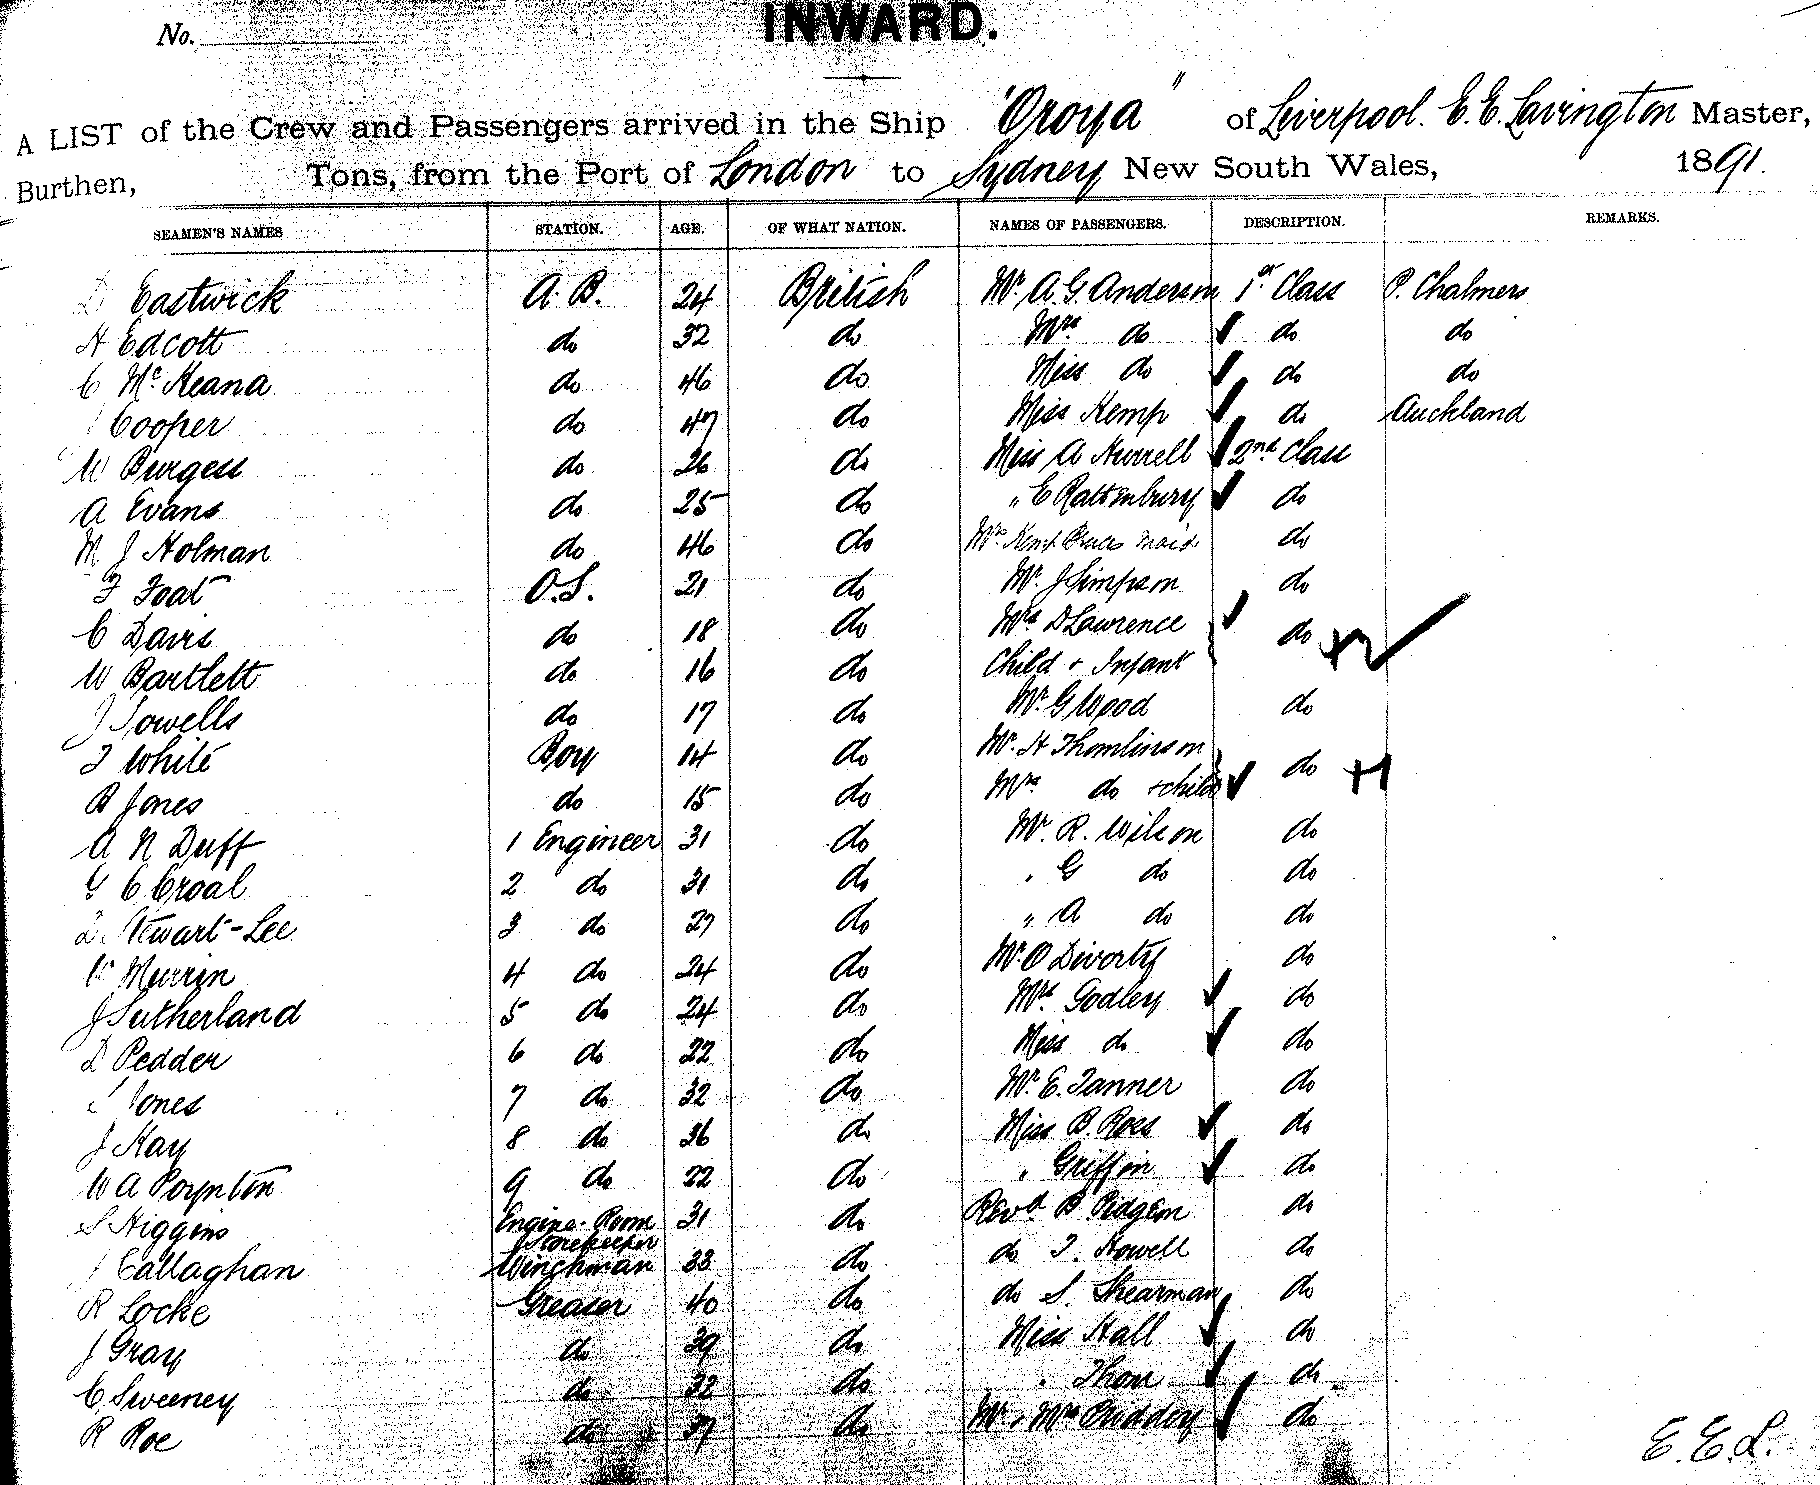 INWARD.
No.
A LIST of the Crew and Passengers arrived in the Ship "Oroya" of Liverpool. E. E. Lavington Master,
Burthen, Tons, from the Port of London to Sydney New South Wales, 1891.
SEAMEN'S NAMES STATION. AGE. OF WHAT NATION. NAMES OF PASSENGERS. DESCRIPTION. REMARKS.
D Eastwick A. B. 24 British Mr. A. G. Anderson 1st Class P. Chalmers
H Edcott do 32 do Mrs do do do
C McKeana do 46 do Miss do do do
Cooper do 47 do Miss Kemp do Auckland
W Burgess do 26 do Miss A Hurrell 2nd Class
A Evans do 25 do " E Rattenbury do
M J Holman do 46 do Mrs Kemp maid do
F Foat O.S. 21 do Mr. J Simpson do
C Davis do 18 do Mrs D Lawrence do
W Bartlett do 16 do Child + Infant
J Sowells do 17 do Mr. G Wood do
T White Boy 14 do Mr. H Thomlinson do
B Jones do 15 do Mrs do + child
A N Duff 1 Engineer 31 do Mr R. Wilson do
G C Croal 2 do 31 do " G do do
D. Stewart-Lee 3 do 27 do " A do do
W Murrin 4 do 24 do Mr. O Divorty do
J Sutherland 5 do 24 do Mrs. Godley do
D Pedder 6 do 22 do Miss do do
Jones 7 do 32 do Mr. E. Tanner do
J Kay 8 do 36 do Miss B. Roes do
W A Poynton 9 do 22 do " Griffin do
S Higgins Engine-Room Storekeeper 31 do Revd B Pidgeon do
Callaghan Winchman 33 do do T. Howell do
R Locke Greaser 40 do do S. Shearman do
J Gray do 39 do Miss Hall do
C Sweeney do 32 do " Thom do
R Roe do 37 do Mr + Mrs Priddey do
E. E. L.